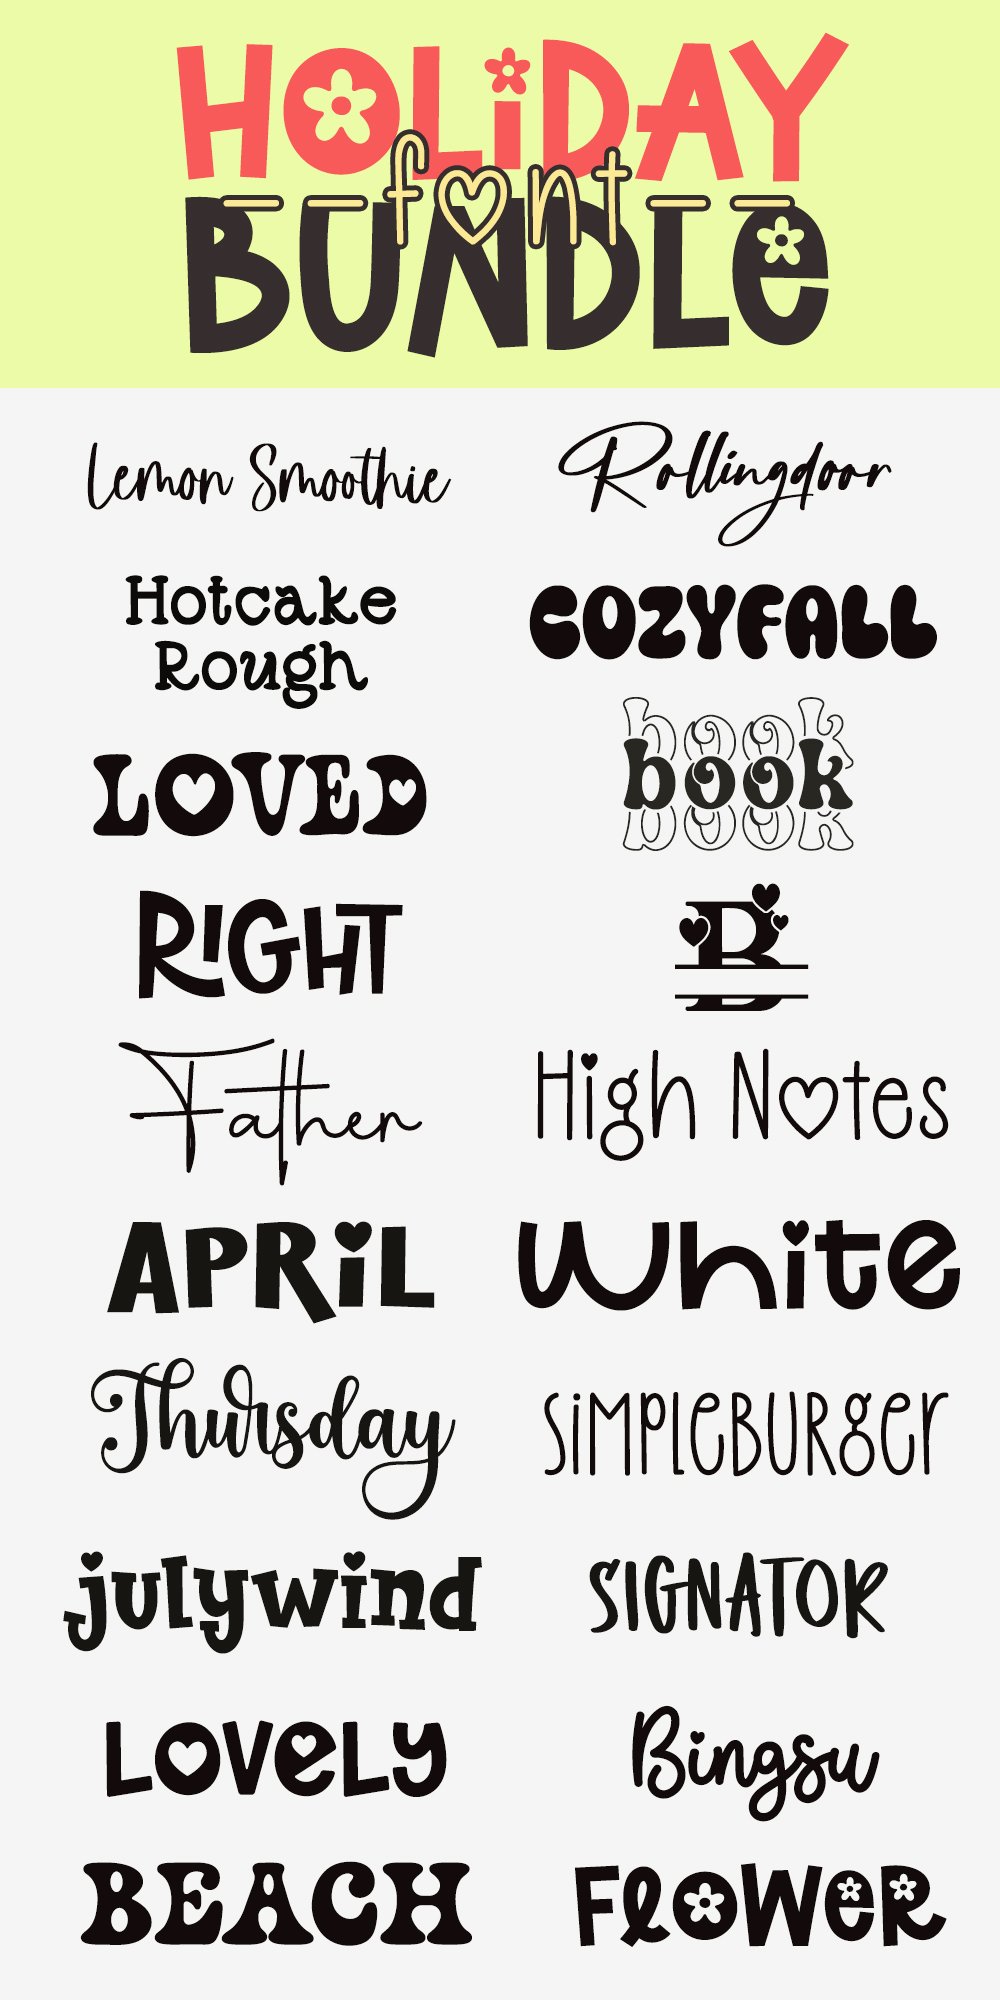 HOLiDAY
font
BUNDLe
Lemon Smoothie
Rollingdoor
Hotcake
Rough
COZYFALL
LOVED
book
book
book
RIGHT
B
Father
High Notes
APRiL
White
Thursday
SiMPLeBURger
julywind
SIGNATOR
LOVeLy
Bingsu
BEACH
FloWeR